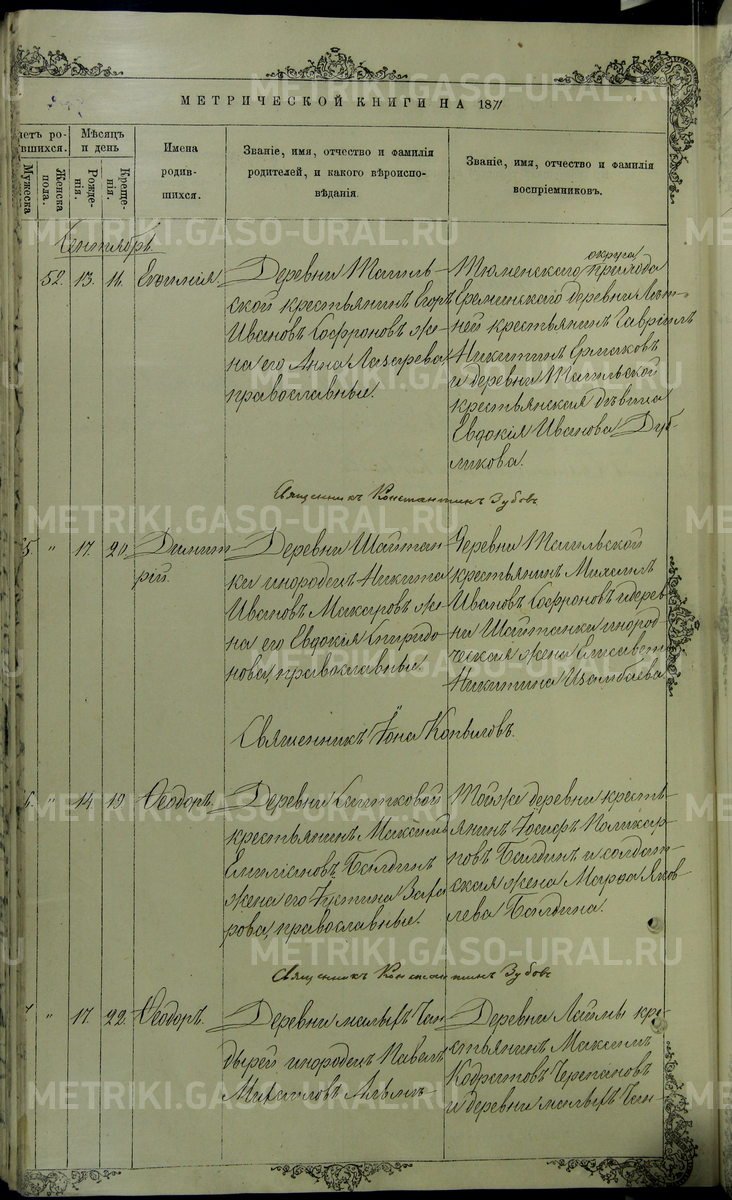 МЕТРИЧЕСКОЙ КНИГИ НА 1871
четъ ро-
вшихся.
Мужеска
Женска
пола.
Мѣсяцъ
и день
Рожде-
нія.
Креще-
нія.
Имена
родив-
шихся.
Званіе, имя, отчество и фамилія
родителей, и какого вѣроиспо-
вѣданія.
Званіе, имя, отчество и фамилія
воспріемниковъ.
Сентябрь
52. 13. 16. Евѳимія.
Деревни Тагиль-
ской крестьянинъ Егоръ
Ивановъ Софроновъ же-
на его Анна Лазарева,
православные.
Тюменскаго округа прихода
Ереминскаго деревни
ней крестьянинъ Гавріилъ
Никитинъ Ермаковъ
и деревни Тагильской
крестьянская дѣвица
Евдокія Иванова Дуб-
ликова.
Священникъ Константинъ Зубовъ
55. " 17. 20. Димит
рій.
Деревни Шайтан-
ки инородецъ Никита
Ивановъ Макаровъ же-
на его Евдокія Спиридо
нова, православные.
Деревни Тагильской
крестьянинъ Михаилъ
Ивановъ Софроновъ и дерев
ни Шайтанки инород
ческая жена Елисавета
Никитина Изамбаева
Священникъ Іона Копыловъ.
6. " 14. 19. Ѳеодоръ.
Деревни Ситковой
крестьянинъ Максимъ
Емиліановъ Балдинъ
жена его Іустина Заха
рова, православные.
Тойже деревни кресть-
янинъ Іосифъ Поликар-
повъ Балдинъ и солдат-
ская жена Марѳа Яков
лева Балдина.
Священникъ Константинъ Зубовъ
7 " 17. 22. Ѳеодоръ.
Деревни малыхъ Чан-
дырей инородецъ Павелъ
Михайловъ
Деревни Лаймы кре-
стьянинъ Максимъ
Кодратовъ Черепановъ
и деревни малыхъ Чан-
METRIKI.GASO-URAL.RU